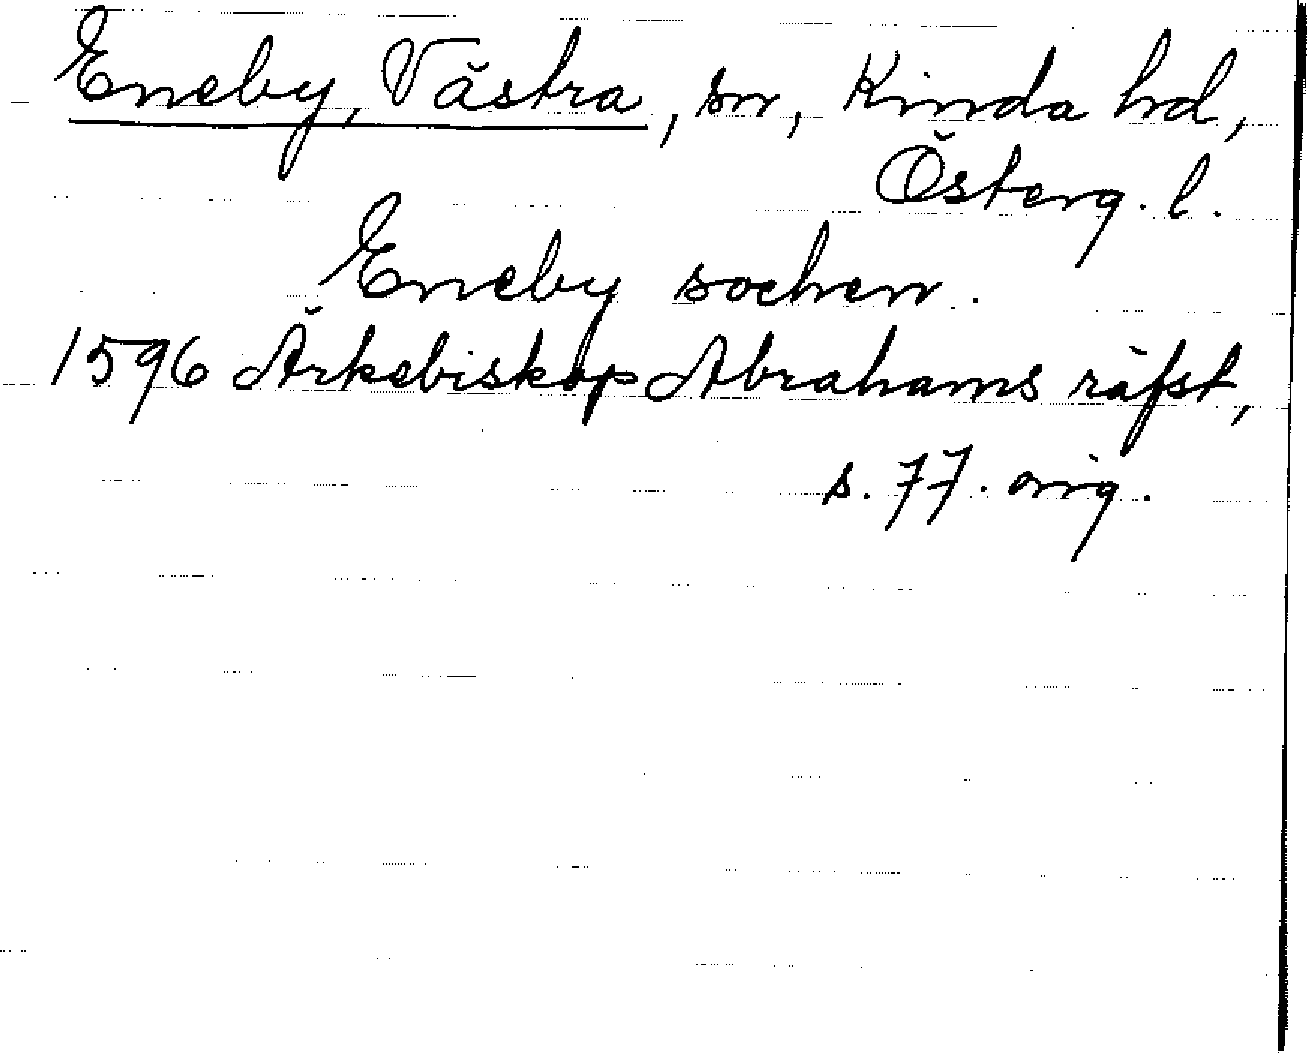 Eneby, Västra, sn, Kinda hd,
Österg. l.
Eneby sochen.
1596 Ärkebiskop Abrahams räfst,
s. 77. orig.